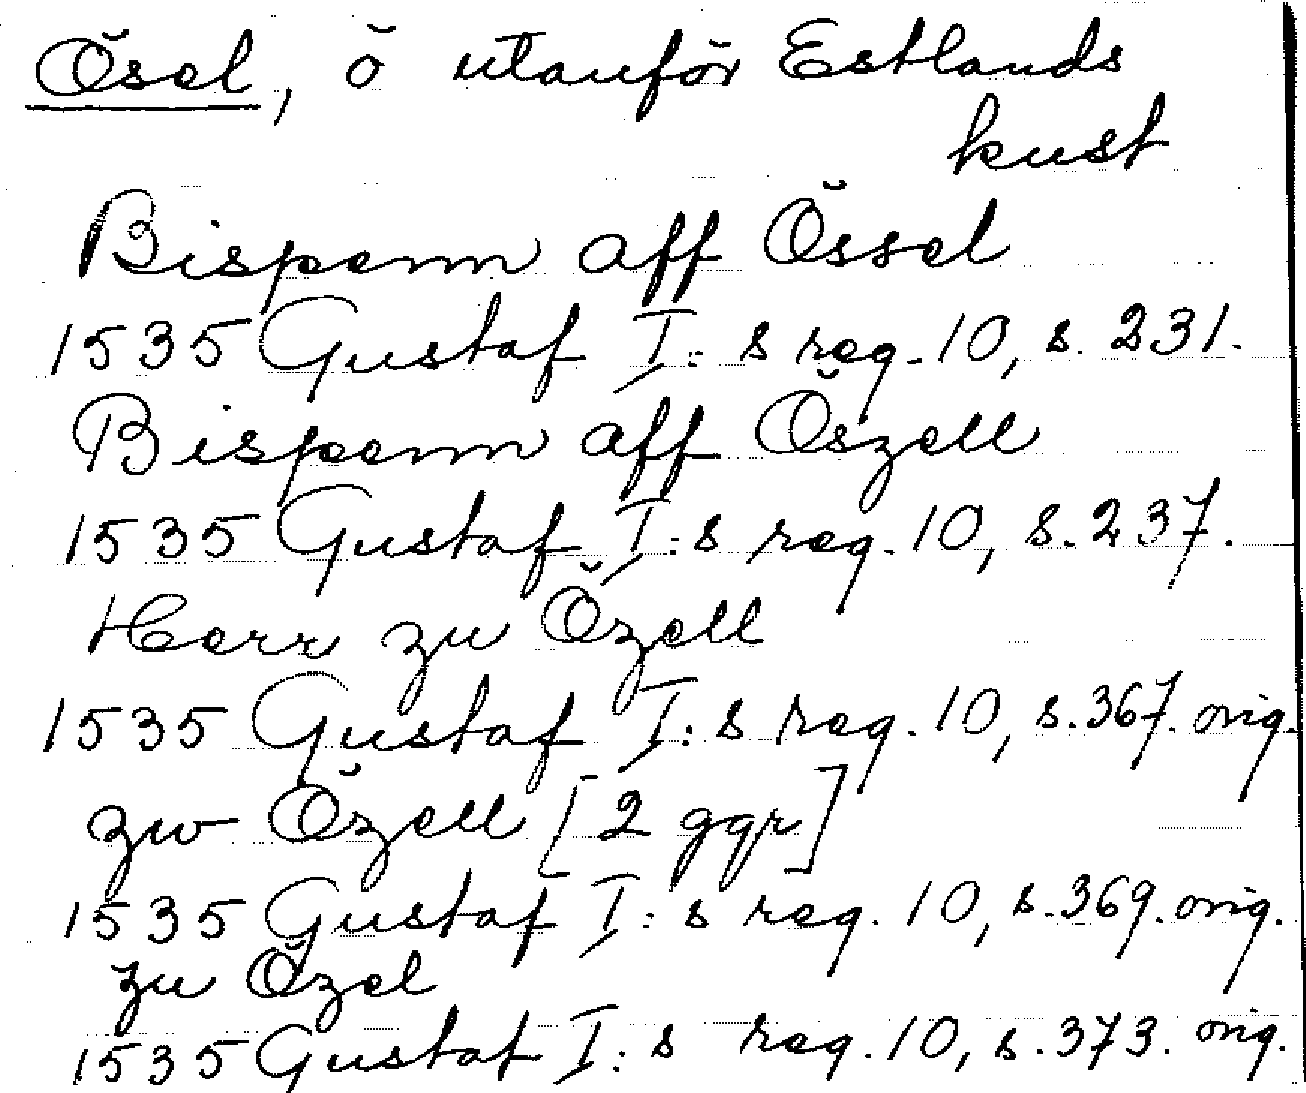 Ösel, ö utanför Estlands
kust
Bispenn aff Össel
1535 Gustaf I:s reg. 10, s. 231.
Bispenn aff Öszell
1535 Gustaf I:s reg. 10, s. 237.
Herr zu Özell
1535 Gustaf I:s reg. 10, s. 367. orig.
zw Özell [2 ggr]
1535 Gustaf I:s reg. 10, s. 369. orig.
zu Özel
1535 Gustaf I:s reg. 10, s. 373. orig.